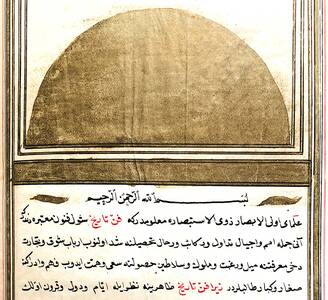 بسم الله الرحمن الرحيم
علمای اولی الابصار ذوی الاستبصاره معلومدرکه فن تاریخ سول فنون معتبره
آنی جمله امم واجیال تداول ورکائب ورحال تحصیلنه شد اولنوب ارباب سوق وتجارت
دخی معرفتنه میل ورغبت وملوك وسلاطین حصولنه سعی وهمت ایدوب وفهم وادراکده
صغار وکبار طالبلردر زیرا فن تاریخ ظاهرینه نظرایله ایام ودول وقرون اولك